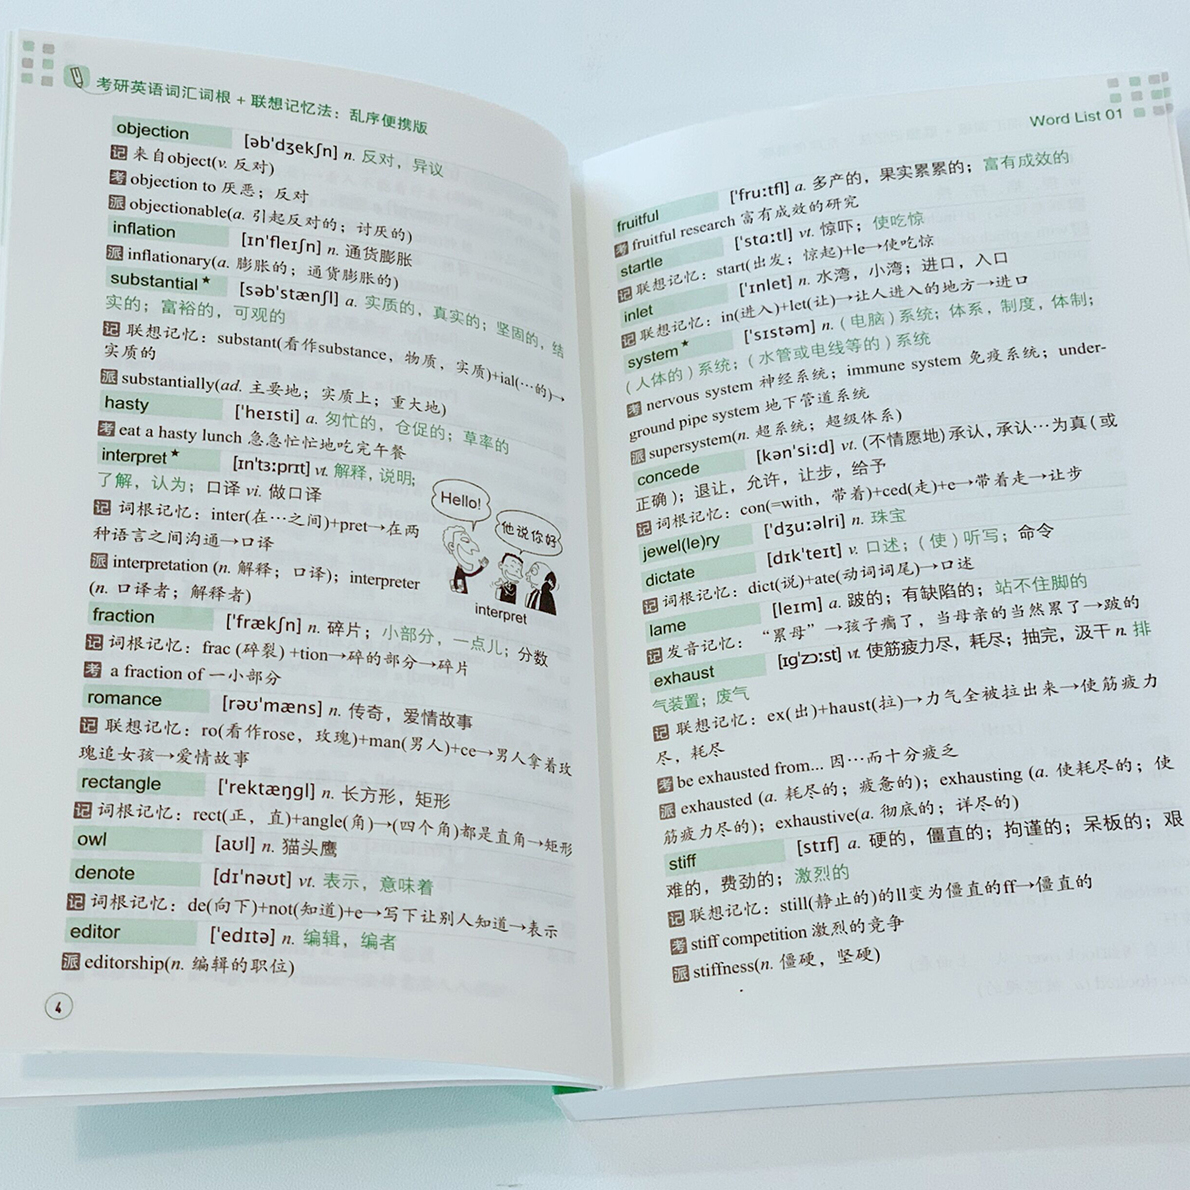 考研英语词汇词根 + 联想记忆法：乱序便携版
objection [əb'dʒekʃn] n. 反对，异议
记 来自object(v. 反对)
考 objection to 厌恶；反对
派 objectionable(a. 引起反对的；讨厌的)
inflation [ɪn'fleɪʃn] n. 通货膨胀
派 inflationary(a. 膨胀的；通货膨胀的)
substantial★ [səb'stænʃl] a. 实质的，真实的；坚固的，结
实的；富裕的，可观的
记 联想记忆：substant(看作substance，物质，实质)+ial(…的)→
实质的
派 substantially(ad. 主要地；实质上；重大地)
hasty ['heɪsti] a. 匆忙的，仓促的；草率的
考 eat a hasty lunch 急急忙忙地吃完午餐
interpret★ [ɪn'tɜːprɪt] vt. 解释，说明；
了解，认为；口译 vi. 做口译
记 词根记忆：inter(在…之间)+pret→在两
种语言之间沟通→口译
派 interpretation (n. 解释；口译)；interpreter
(n. 口译者；解释者)
Hello!
他说你好
interpret
fraction ['frækʃn] n. 碎片；小部分，一点儿；分数
记 词根记忆：frac (碎裂) +tion→碎的部分→碎片
考 a fraction of 一小部分
romance [rəʊ'mæns] n. 传奇，爱情故事
记 联想记忆：ro(看作rose，玫瑰)+man(男人)+ce→男人拿着玫
瑰追女孩→爱情故事
rectangle ['rektæŋgl] n. 长方形，矩形
记 词根记忆：rect(正，直)+angle(角)→(四个角)都是直角→矩形
owl [aʊl] n. 猫头鹰
denote [dɪ'nəʊt] vt. 表示，意味着
记 词根记忆：de(向下)+not(知道)+e→写下让别人知道→表示
editor ['edɪtə] n. 编辑，编者
派 editorship(n. 编辑的职位)
4
Word List 01
fruitful ['fruːtfl] a. 多产的，果实累累的；富有成效的
考 fruitful research 富有成效的研究
startle ['stɑːtl] vt. 惊吓；使吃惊
记 联想记忆：start(出发；惊起)+le→使吃惊
inlet ['ɪnlet] n. 水湾，小湾；进口，入口
记 联想记忆：in(进入)+let(让)→让人进入的地方→进口
system★ ['sɪstəm] n. (电脑)系统；体系，制度，体制；
(人体的)系统；(水管或电线等的)系统
考 nervous system 神经系统；immune system 免疫系统；under-
ground pipe system 地下管道系统
派 supersystem(n. 超系统；超级体系)
concede [kən'siːd] vt. (不情愿地)承认,承认…为真(或
正确)；退让，允许，让步，给予
记 词根记忆：con(=with，带着)+ced(走)+e→带着走→让步
jewel(le)ry ['dʒuːəlri] n. 珠宝
dictate [dɪk'teɪt] v. 口述；(使)听写；命令
记 词根记忆：dict(说)+ate(动词词尾)→口述
lame [leɪm] a. 跛的；有缺陷的；站不住脚的
记 发音记忆：“累母”→孩子瘸了，当母亲的当然累了→跛的
exhaust [ɪg'zɔːst] vt. 使筋疲力尽，耗尽；抽完，汲干 n. 排
气装置；废气
记 联想记忆：ex(出)+haust(拉)→力气全被拉出来→使筋疲力
尽，耗尽
考 be exhausted from... 因…而十分疲乏
派 exhausted (a. 耗尽的；疲惫的)；exhausting (a. 使耗尽的；使
筋疲力尽的)；exhaustive(a. 彻底的；详尽的)
stiff [stɪf] a. 硬的，僵直的；拘谨的；呆板的；艰
难的，费劲的；激烈的
记 联想记忆：still(静止的)的ll变为僵直的ff→僵直的
考 stiff competition 激烈的竞争
派 stiffness(n. 僵硬，坚硬)